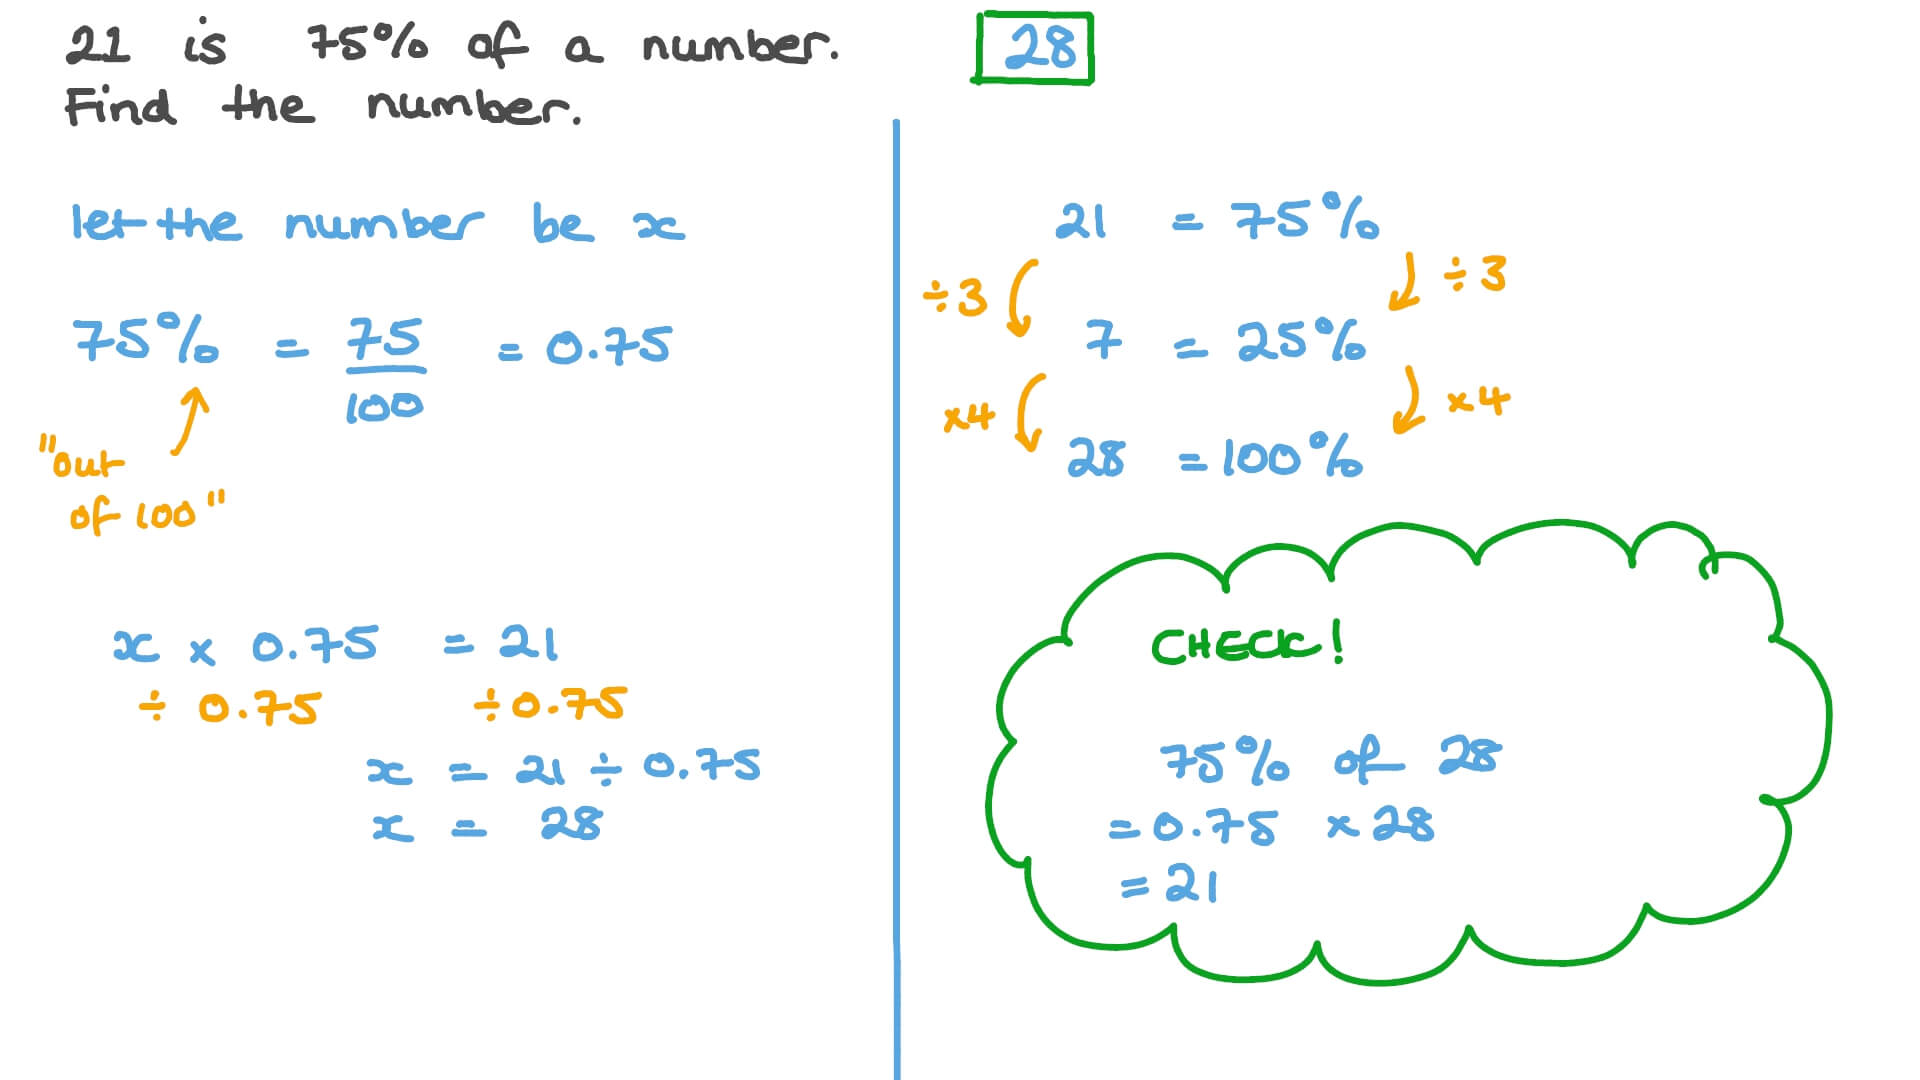 21 is 75% of a number.
Find the number.
28
let the number be x
75% = 75/100 = 0.75
"out
of 100"
x × 0.75 = 21
÷ 0.75 ÷ 0.75
x = 21 ÷ 0.75
x = 28
21 = 75%
÷3 ÷3
7 = 25%
×4 ×4
28 = 100%
CHECK!
75% of 28
= 0.75 × 28
= 21